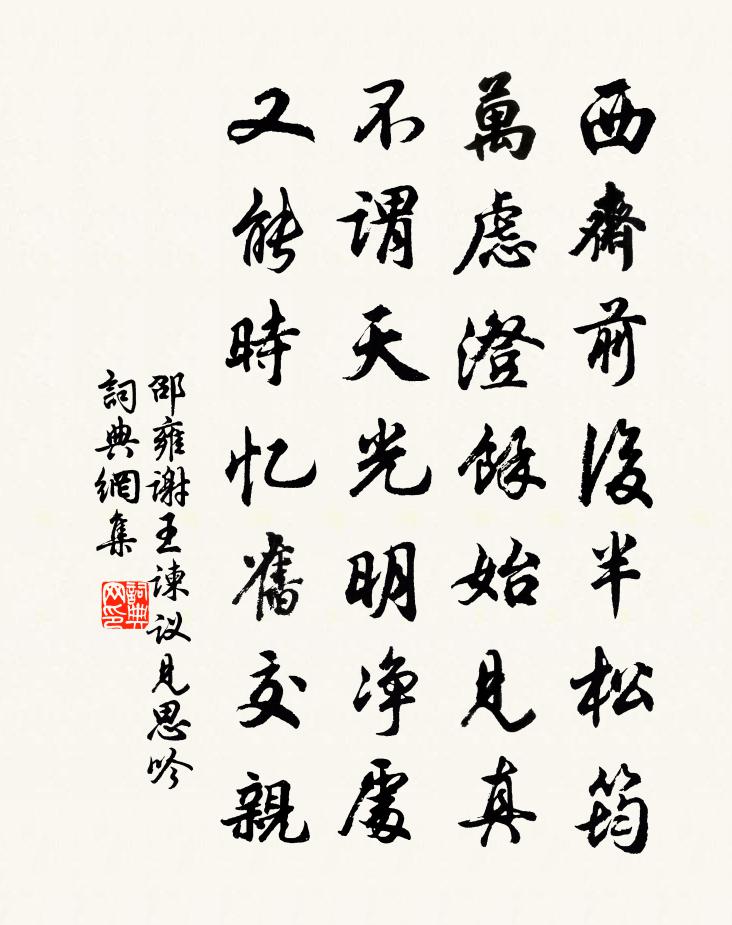 西齋前後半松筠
萬慮澄餘始見真
不謂天光明净處
又能時忆舊交親
邵雍谢王諫议見思吟
詞典網集
詞典网印